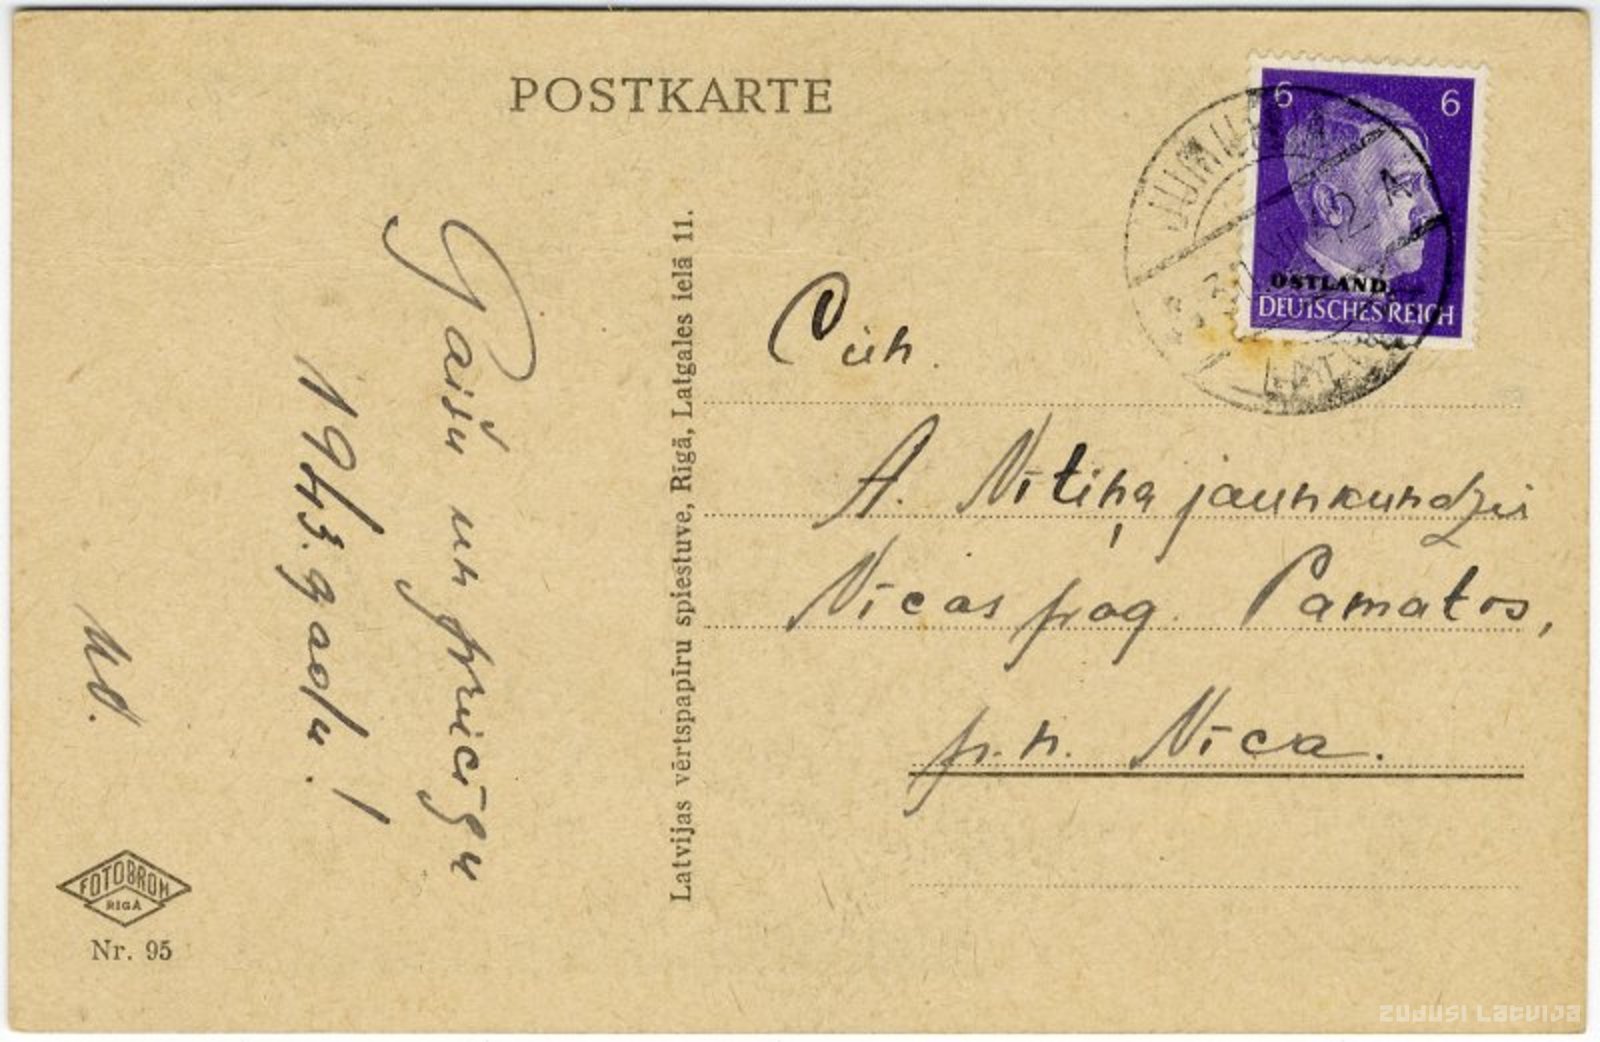 POSTKARTE
6 6
OSTLAND
DEUTSCHES REICH
Gaišu un priecīgu
1943. gadu!
Cien.
A. Nītiņa jaunkundzei
Nīcas pag. Pamatos,
p. n. Nīca.
Latvijas vērtspapīru spiestuve, Rīgā, Latgales ielā 11.
FOTOBROM
RIGA
Nr. 95
ZUDUSI LATVIJA